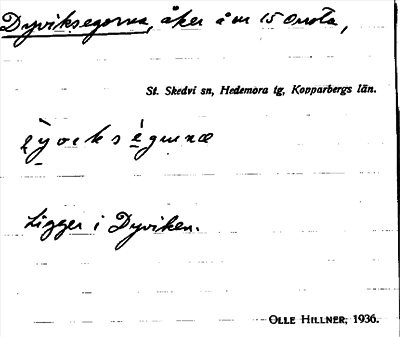 Dyviksegorna, åker å nr 15 Onsta,
St. Skedvi sn, Hedemora tg, Kopparbergs län.
Ligger i Dyviken.
OLLE HILLNER, 1936.